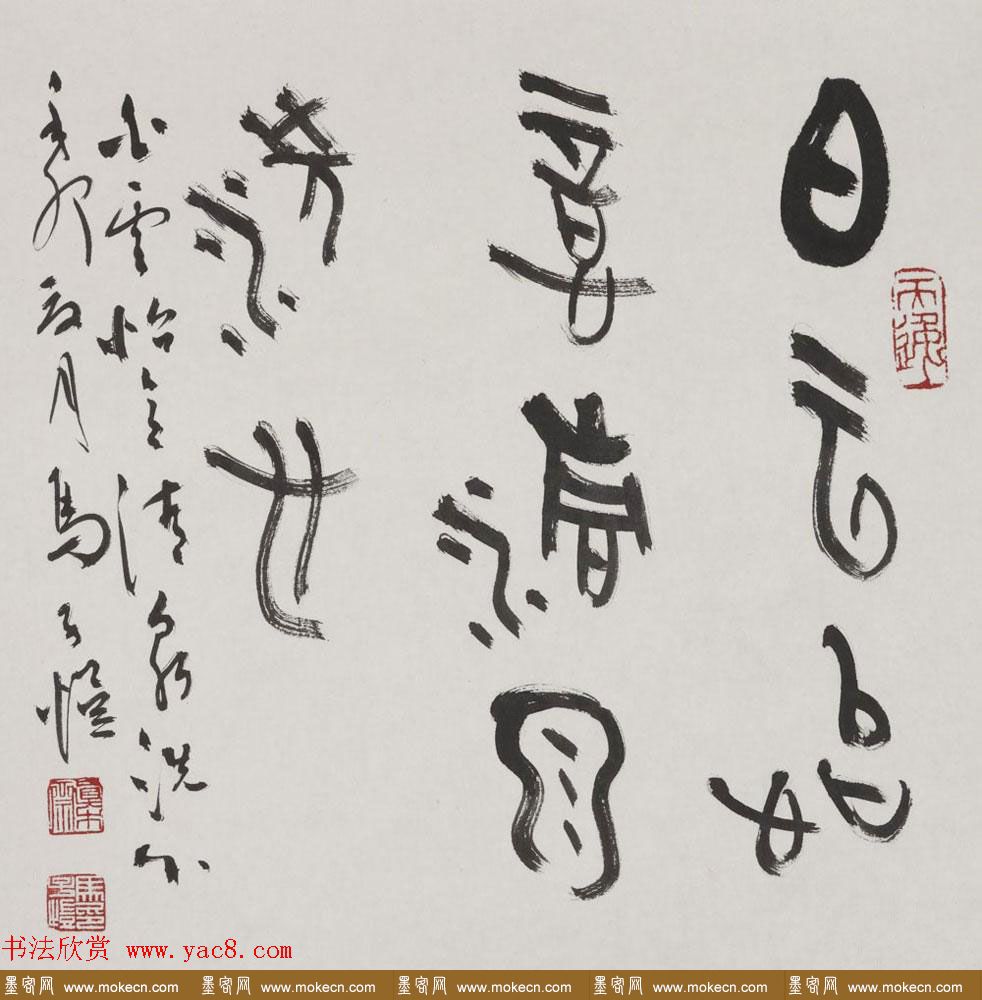 白云怡
意清泉
洗心
白雲怡意清泉洗心
辛卯 月馬子愷
书法欣赏 www.yac8.com
墨客网 www.mokecn.com 墨客网 www.mokecn.com 墨客网 www.mokecn.com 墨客网 www.mokecn.com 墨客网 www.mokecn.com